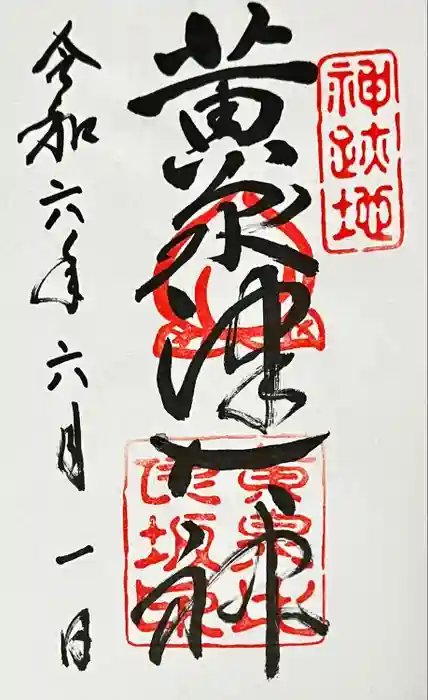 神跡地
黄泉津大神
黄泉比
良坂印
令和六年六月一日